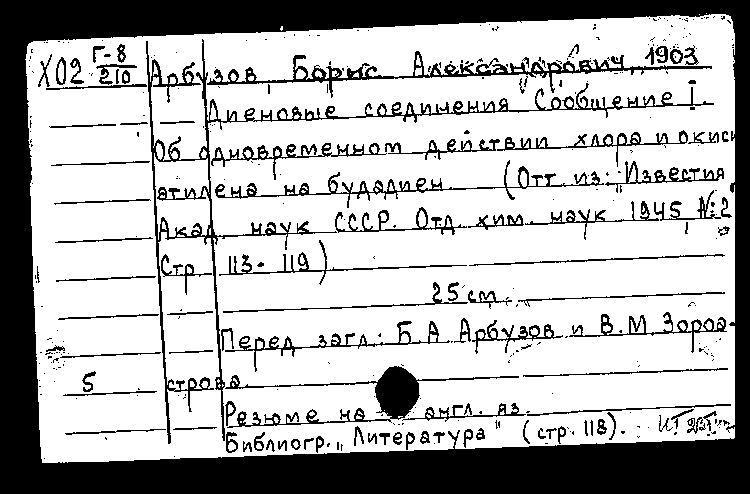 Х02 Г-8/210 Арбузов, Борис Александрович, 1903
Диеновые соединения Сообщение I.
Об одновременном действии хлора и окиси
этилена на будадиен. (Отт. из: "Известия
Акад. наук СССР. Отд. хим. наук" 1945, №2
Стр. 113-119)
25 см.
Перед загл.: Б.А Арбузов и В.М Зороа-
5 строва.
Резюме на англ. яз.
Библиогр. "Литература" (стр. 118).